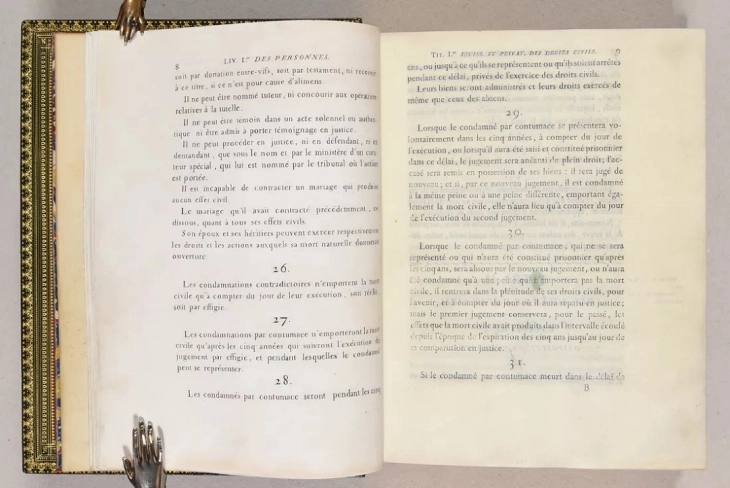 8 LIV. I.er DES PERSONNES.
soit par donation entre-vifs, soit par testament, ni recevoir
à ce titre, si ce n'est pour cause d'alimens.
Il ne peut être nommé tuteur, ni concourir aux opérations
relatives à la tutelle.
Il ne peut être témoin dans un acte solennel ou authen-
tique ni être admis à porter témoignage en justice.
Il ne peut procéder en justice, ni en défendant, ni en
demandant, que sous le nom et par le ministère d'un cura-
teur spécial, qui lui est nommé par le tribunal où l'action
est portée.
Il est incapable de contracter un mariage qui produise
aucun effet civil
Le mariage qu'il avait contracté précédemment, est
dissous, quant à tous ses effets civils.
Son époux et ses héritiers peuvent exercer respectivement
les droits et les actions auxquels sa mort naturelle donnerait
ouverture.
26.
Les condamnations contradictoires n'emportent la mort
civile qu'à compter du jour de leur exécution, soit réelle,
soit par effigie.
27.
Les condamnations par contumace n'emporteront la mort
civile qu'après les cinq années qui suivront l'exécution du
jugement par effigie, et pendant lesquelles le condamné
peut se représenter.
28.
Les condamnés par contumace seront pendant les cinq
TIT. I.er JOUISS. ET PRIVAT. DES DROITS CIVILS. 9
ans, ou jusqu'à ce qu'ils se représentent ou qu'ils soient arrêtés
pendant ce délai, privés de l'exercice des droits civils.
Leurs biens seront administrés et leurs droits exercés de
même que ceux des absens.
29.
Lorsque le condamné par contumace se présentera vo-
lontairement dans les cinq années, à compter du jour de
l'exécution, ou lorsqu'il aura été saisi et constitué prisonnier
dans ce délai, le jugement sera anéanti de plein droit; l'ac-
cusé sera remis en possession de ses biens: il sera jugé de
nouveau; et si, par ce nouveau jugement, il est condamné
à la même peine ou à une peine différente, emportant éga-
lement la mort civile, elle n'aura lieu qu'à compter du jour
de l'exécution du second jugement.
30.
Lorsque le condamné par contumace, qui ne se sera
représenté ou qui n'aura été constitué prisonnier qu'après
les cinq ans, sera absous par le nouveau jugement, ou n'aura
été condamné qu'à une peine qui n'emportera pas la mort
civile, il rentrera dans la plénitude de ses droits civils, pour
l'avenir, et à compter du jour où il aura reparu en justice;
mais le premier jugement conservera, pour le passé, les
effets que la mort civile avait produits dans l'intervalle écoulé
depuis l'époque de l'expiration des cinq ans jusqu'au jour de
sa comparution en justice.
31.
Si le condamné par contumace meurt dans le délai de
B